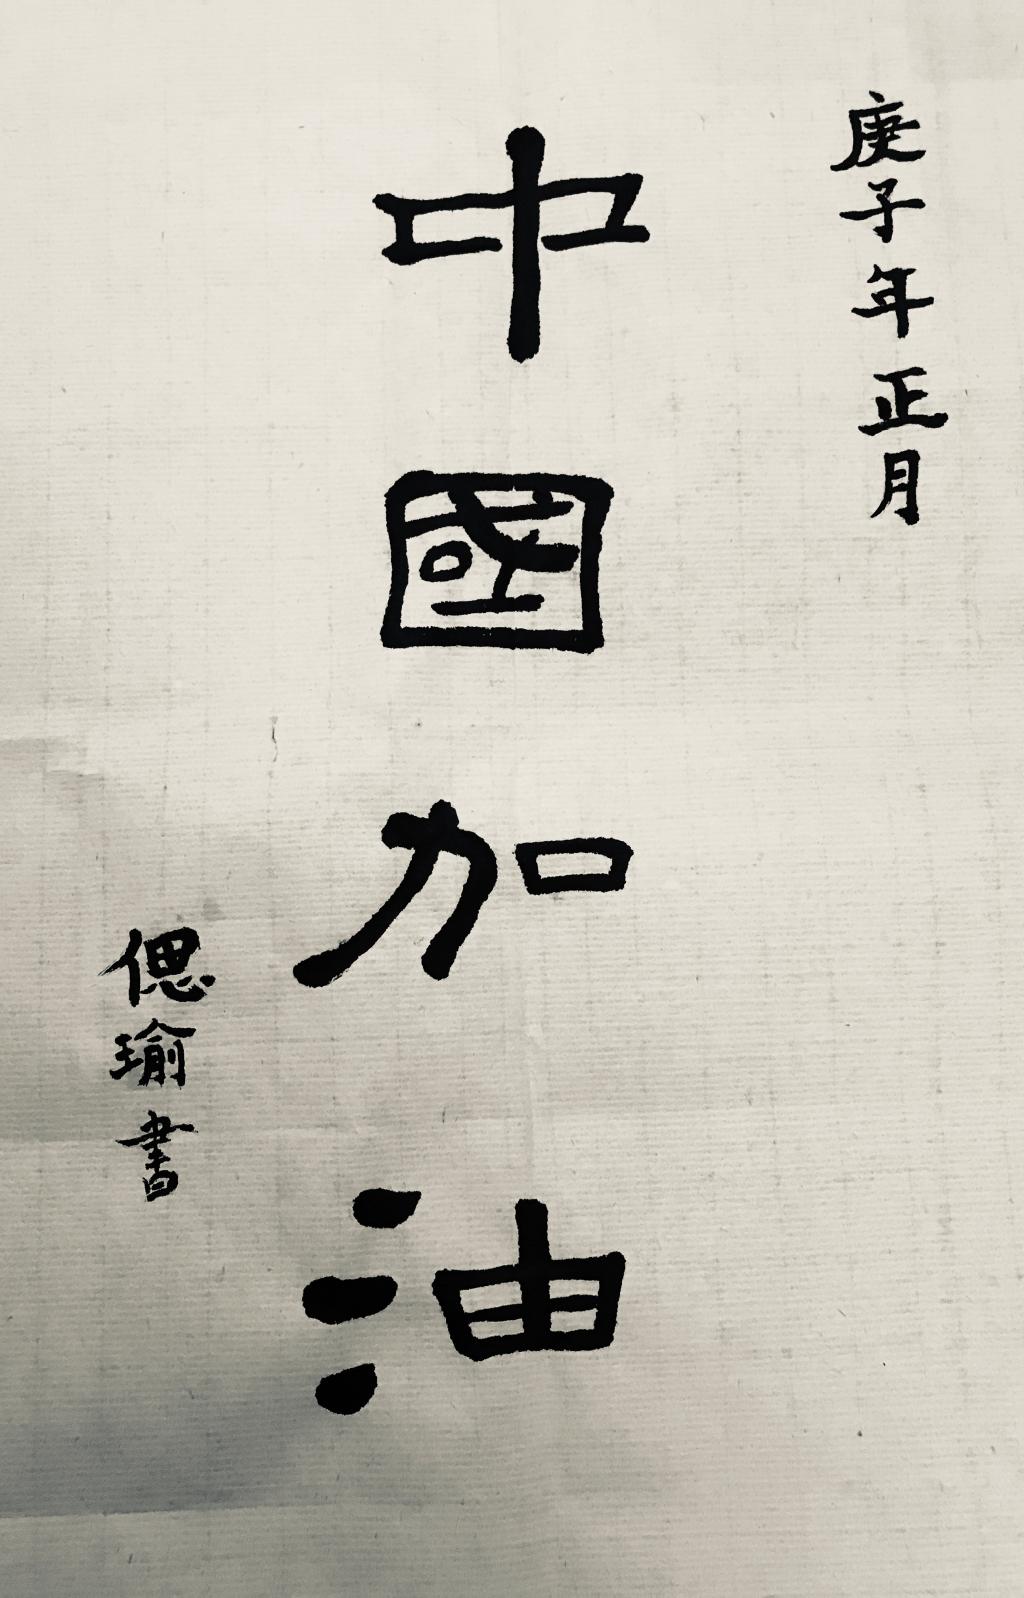 庚子年正月
中國加油
偲瑜書